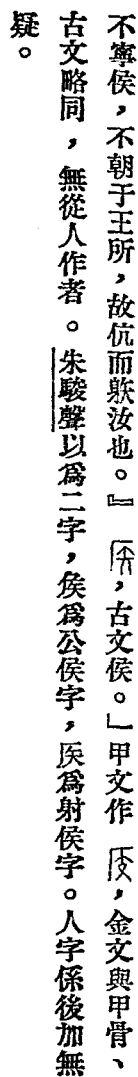 不寧侯，不朝于王所，故伉而䠶汝也。』𥎦，古文侯。」甲文作𥎦，金文與甲骨、
古文略同，無從人作者。朱駿聲以爲二字，矦爲公侯字，𥎦爲射侯字。人字係後加無
疑。